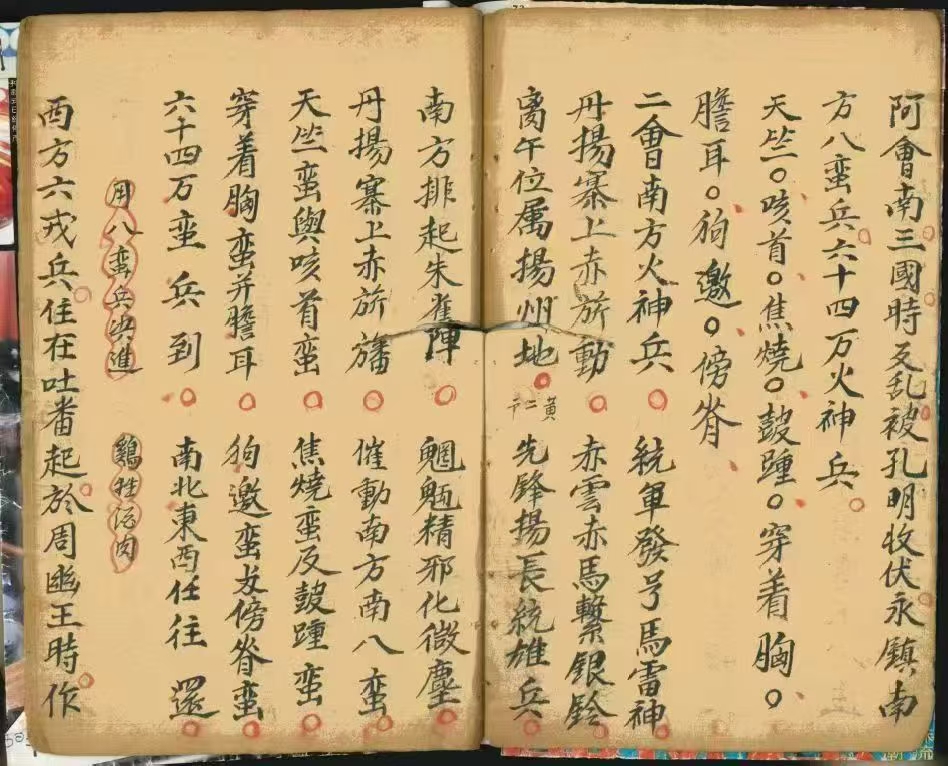 阿會南三國時反乱被孔明收伏永鎮南
方八蛮兵六十四万火神兵
天竺。咳首。焦燒。鼓踵。穿着胸。
膽耳。狗邀。傍脊
二會南方火神兵。統軍發号馬雷神
丹揚寨上赤旂動。赤雲赤馬繫銀鈴
离午位属揚州地。先鋒揚長統雄兵
南方排起朱雀陣。魍魎精邪化微塵
丹揚寨上赤旂旙。催動南方南八蛮
天竺蛮與咳首蛮。焦燒蛮反鼓踵蛮
穿着胸蛮并膽耳。狗邀蛮及傍脊蛮
六十四万蛮兵到。南北東西任往還
用八蛮兵洪進 鷄牲酒肉
西方六戎兵住在吐番起於周幽王時作